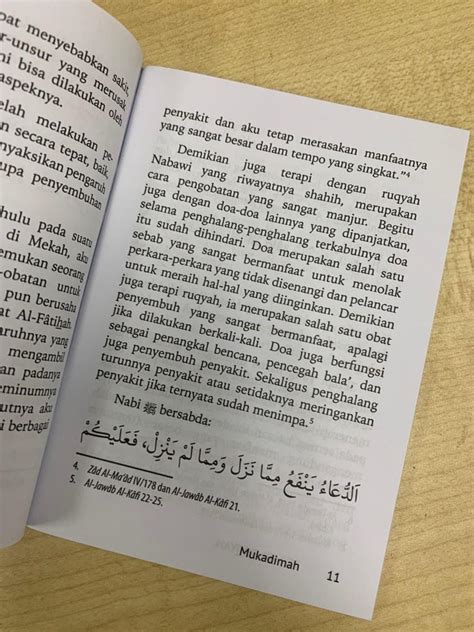 pat menyebabkan sakit,
r-unsur yang merusak
ni bisa dilakukan oleh
aspeknya.
elah melakukan pe-
n secara tepat, baik,
nyaksikan pengaruh
upa penyembuhan
hulu pada suatu
di Mekah, aku
emukan seorang
-obatan untuk
pun berusaha
at Al-Fâtiḥah
aruhnya yang
mengambil
an padanya
eminumnya
utnya aku
i berbagai
penyakit dan aku tetap merasakan manfaatnya
yang sangat besar dalam tempo yang singkat.”4
Demikian juga terapi dengan ruqyah
Nabawi yang riwayatnya shahih, merupakan
cara pengobatan yang sangat manjur. Begitu
juga dengan doa-doa lainnya yang dipanjatkan,
selama penghalang-penghalang terkabulnya doa
itu sudah dihindari. Doa merupakan salah satu
sebab yang sangat bermanfaat untuk menolak
perkara-perkara yang tidak disenangi dan pelancar
untuk meraih hal-hal yang diinginkan. Demikian
juga terapi ruqyah, ia merupakan salah satu obat
penyembuh yang sangat bermanfaat, apalagi
jika dilakukan berkali-kali. Doa juga berfungsi
sebagai penangkal bencana, pencegah bala’, dan
juga penyembuh penyakit. Sekaligus penghalang
turunnya penyakit atau setidaknya meringankan
penyakit jika ternyata sudah menimpa.5
Nabi ﷺ bersabda:
اَلدُّعَاءُ يَنْفَعُ مِمَّا نَزَلَ وَمِمَّا لَمْ يَنْزِلْ، فَعَلَيْكُمْ
4. Zâd Al-Ma'âd IV/178 dan Al-Jawâb Al-Kâfi 21.
5. Al-Jawâb Al-Kâfi 22-25.
Mukadimah 11